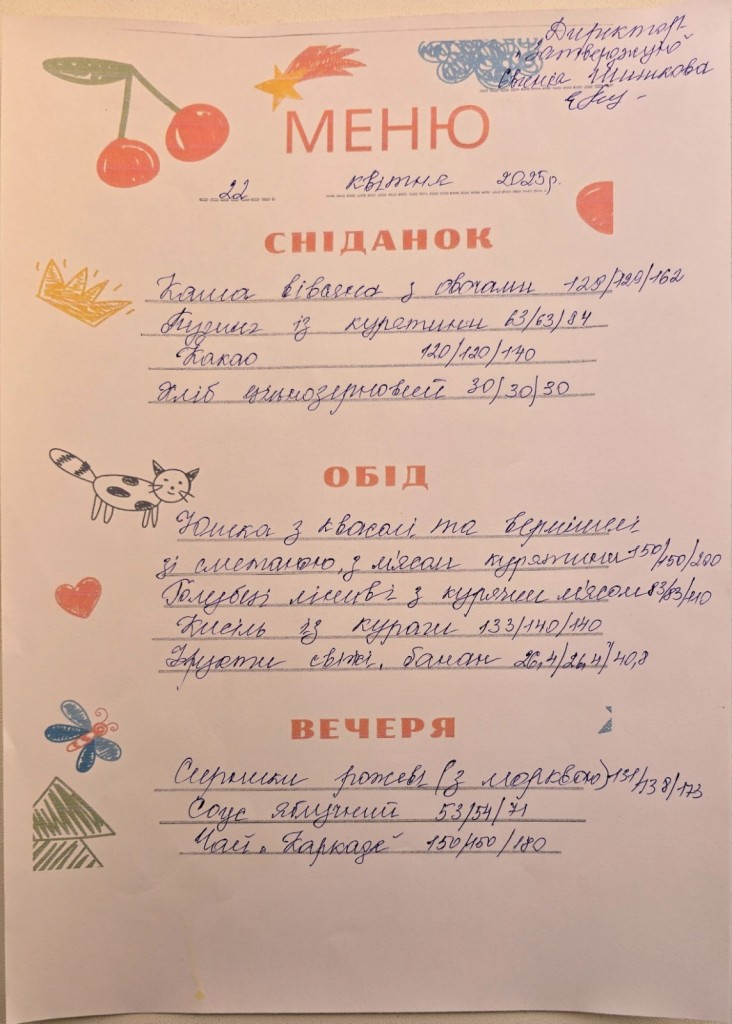 Директор
Затверджую
Шишкова
МЕНЮ
22 квітня 2025р.
СНІДАНОК
Каша вівсяна з овочами 129/129/162
Пудинг із курятини 63/63/84
Какао 120/120/140
Хліб цільнозерновий 30/30/30
ОБІД
Юшка з квасолі та вермішелі
зі сметаною, з м'ясом курятини 150/150/200
Голубці ліниві з курячим м'ясом 83/83/110
Кисіль із кураги 133/140/140
Фрукти свіжі, банан 26,4/26,4/40,8
ВЕЧЕРЯ
Сирники рожеві (з морквою) 131/138/173
Соус яблучний 53/54/71
Чай "Каркаде" 150/150/180